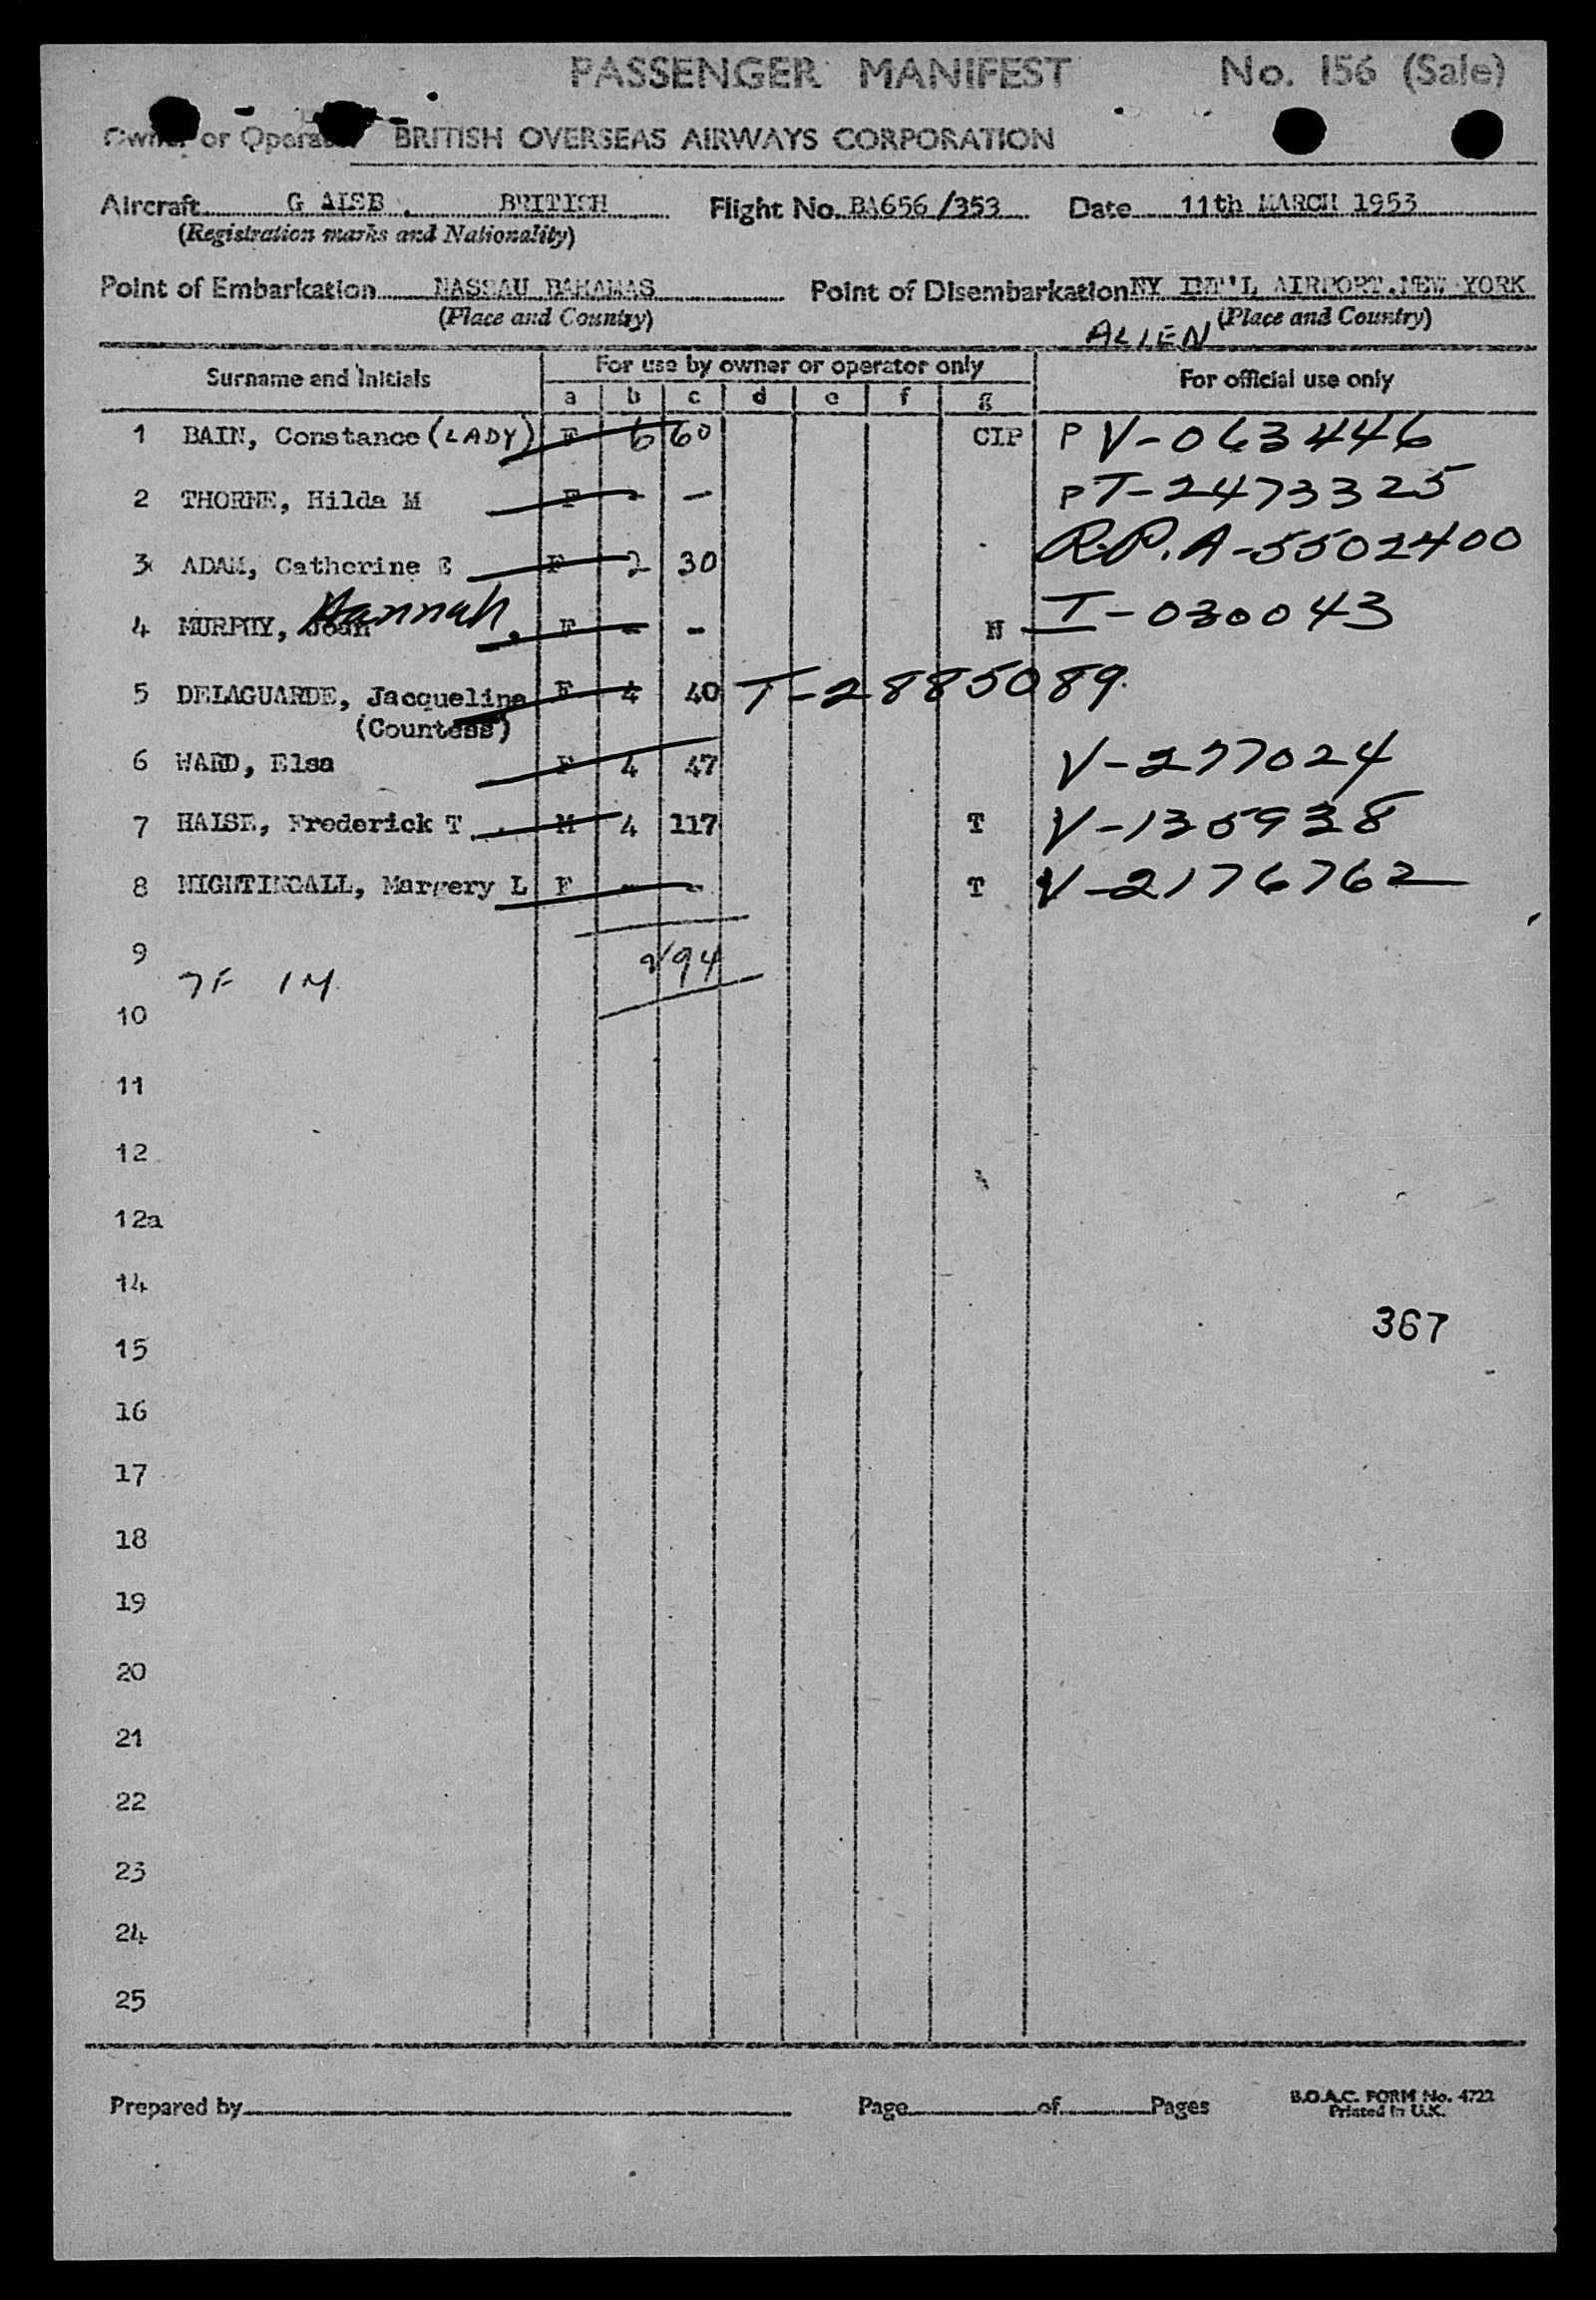 PASSENGER MANIFEST No. 156 (Sale)
Owner or Operator BRITISH OVERSEAS AIRWAYS CORPORATION
Aircraft G AISB. BRITISH Flight No. BA656/353 Date 11th MARCH 1953
(Registration marks and Nationality)
Point of Embarkation NASSAU BAHAMAS Point of Disembarkation NY INT'L AIRPORT.NEW YORK
(Place and Country) (Place and Country)
ALIEN
Surname and Initials For use by owner or operator only For official use only
a b c d e f g
1 BAIN, Constance (LADY) F 6 60 CIP P V-063446
2 THORNE, Hilda M F - - P T-2473325
3 ADAM, Catherine E F 2 30 R.P. A-5502400
4 MURPHY, Joan Hannah. F - - N I-030043
5 DELAGUARDE, Jacqueline F 4 40 T-2885089
(Countess)
6 WARD, Elsa F 4 47 V-277024
7 HAISE, Frederick T. M 4 117 T V-1309328
8 NIGHTINGALL, Margery L F - - T V-2176762
9 294
7F 1M
10
11
12
12a
14
367
15
16
17
18
19
20
21
22
23
24
25
Prepared by Page of Pages B.O.A.C. FORM No. 4722
Printed in U.K.